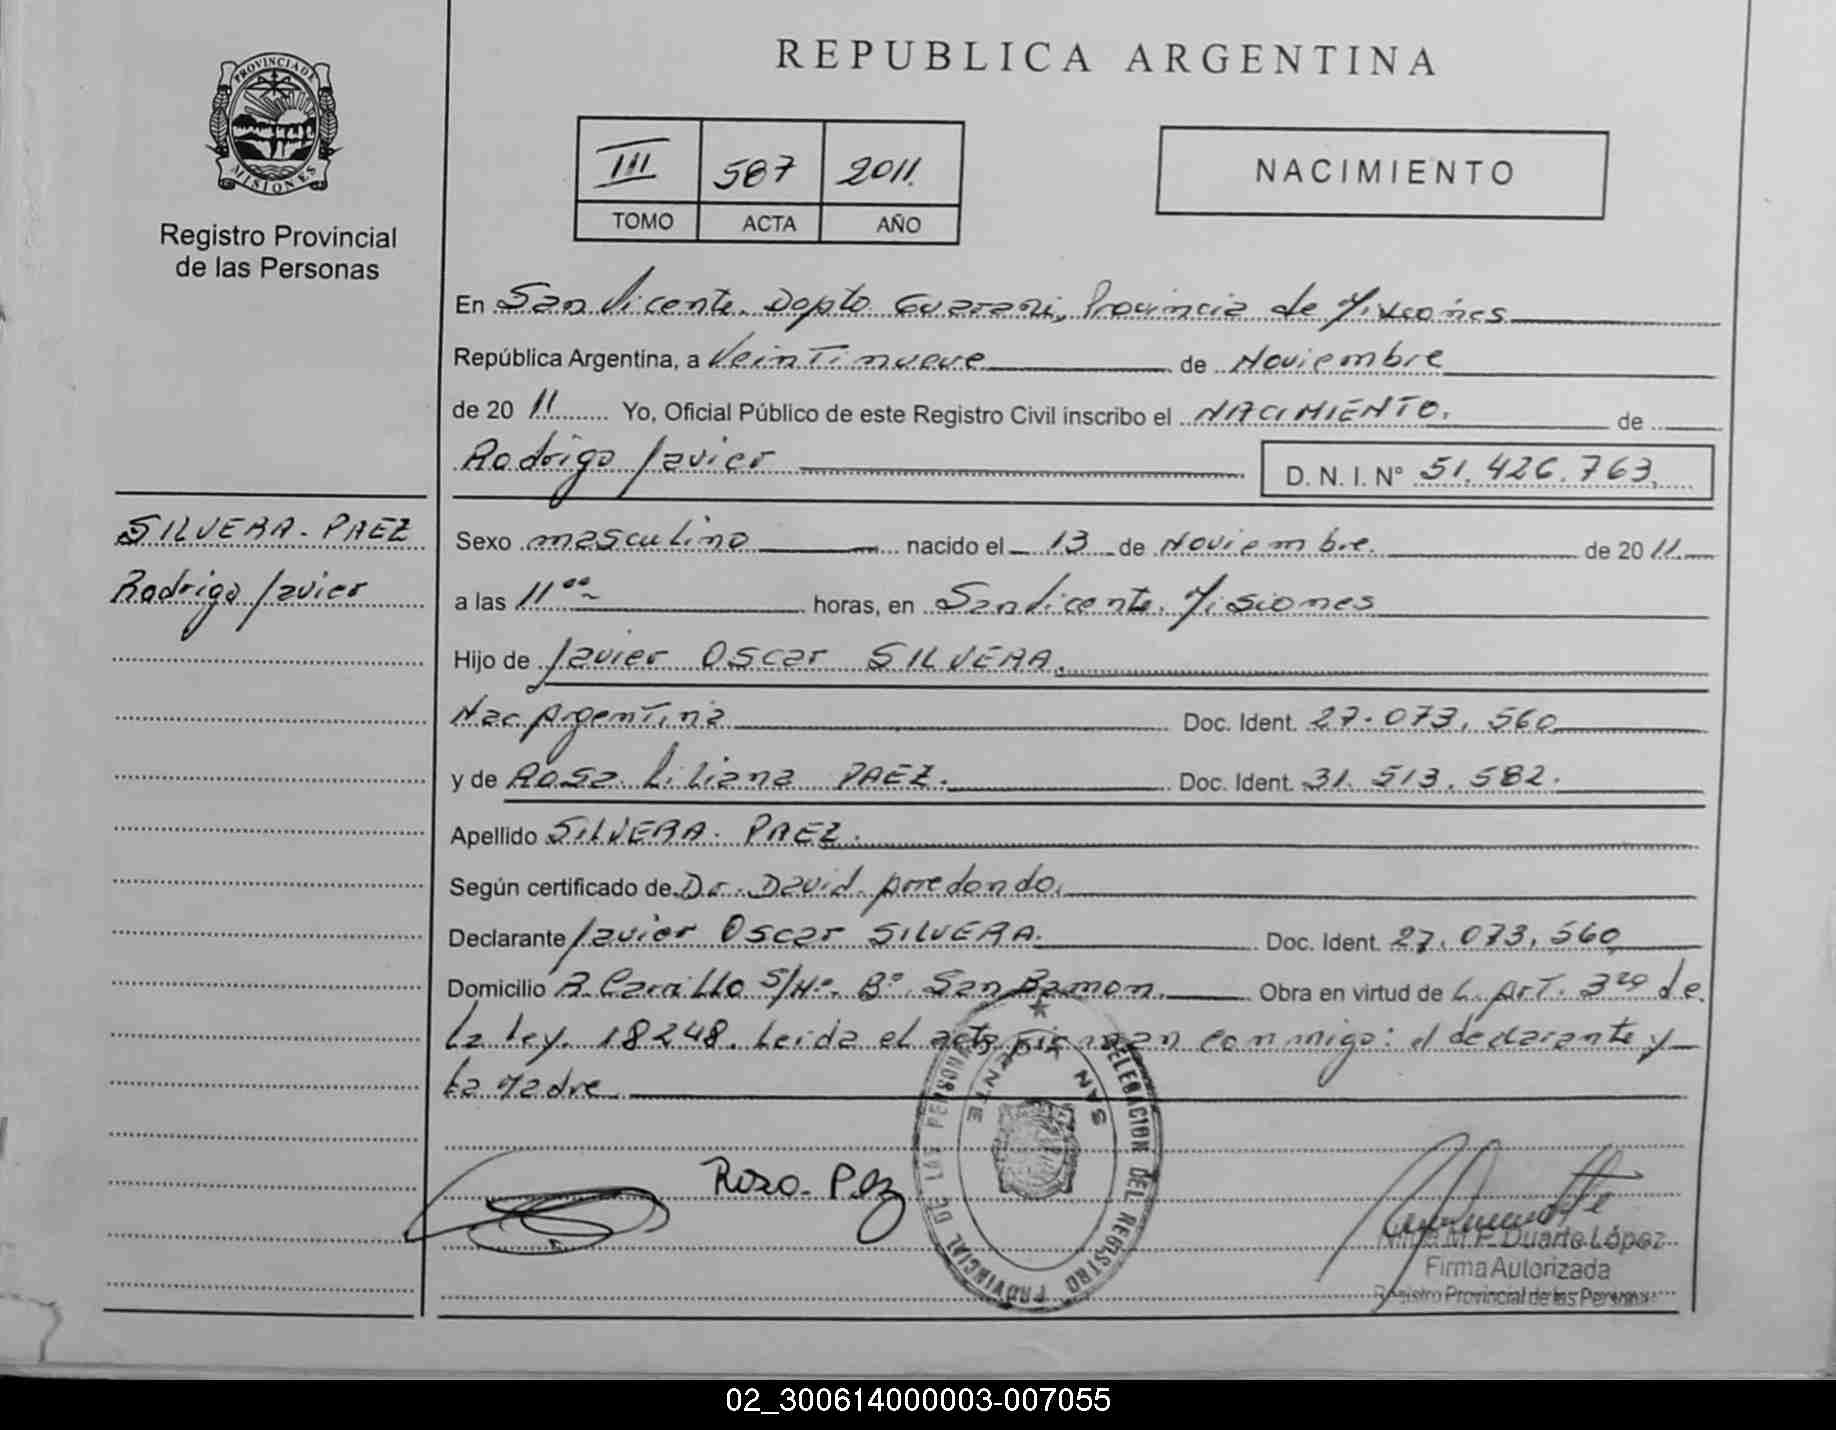 REPUBLICA ARGENTINA
PROVINCIA DE
MISIONES
Registro Provincial
de las Personas
III 587 2011.
TOMO ACTA AÑO
NACIMIENTO
En San Vicente. Dopto Guarani, Provincia de Misiones
República Argentina, a Veintinueve de Noviembre
de 20 11 Yo, Oficial Público de este Registro Civil inscribo el NACIMIENTO. de
Rodrigo Javier D. N. I. Nº 51.426.763.
SILVERA - PAEZ
Rodrigo Javier
Sexo masculino nacido el 13 de Noviembre. de 2011
a las 11⁰⁰ horas, en San Vicente. Misiones
Hijo de Javier Oscar SILVERA.
Nac. Argentina Doc. Ident. 27.073.560
y de Rosa Liliana PAEZ. Doc. Ident. 31.513.582.
Apellido SILVERA. PAEZ.
Según certificado de Dr. David Arredondo.
Declarante Javier Oscar SILVERA. Doc. Ident. 27.073.560
Domicilio R. Carrillo S/Nº. Bº. San Ramon. Obra en virtud de L. Art. 3ro de
la Ley. 18248. Leida el acta firman conmigo: el declarante y
la Madre
DELEGACION DEL REGISTRO PROVINCIAL DE LAS PERSONAS
SAN VICENTE
Rosa. Pez
M. F. Duarte López
Firma Autorizada
Registro Provincial de las Personas
02_300614000003-007055